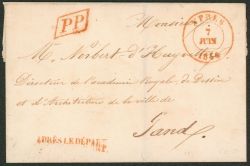 P.P.
YPRES
7
JUIN
Monsieur
Mr. Norbert d'Huy
Directeur de l'académie Royale de Dessin
et d'Architecture de la ville de
Gand
APRÈS LE DÉPART